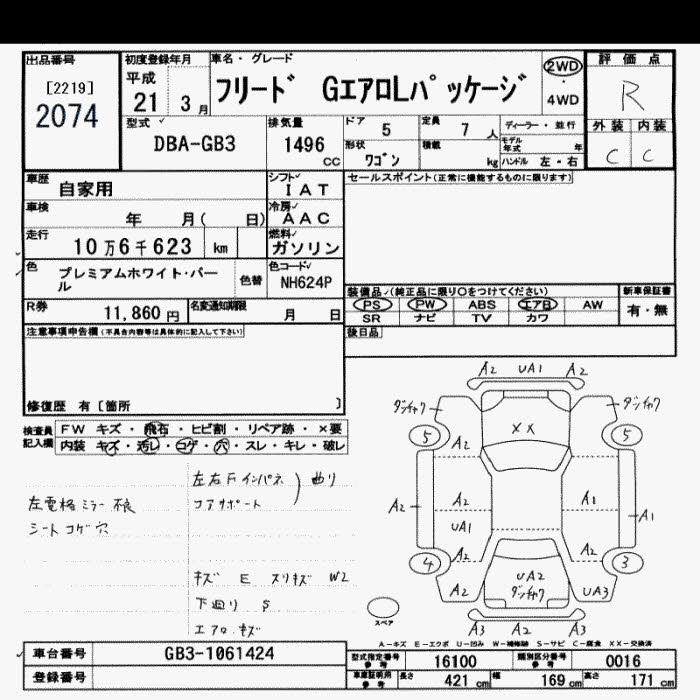 出品番号 初度登録年月 車名・グレード 評価点
[2219] 平成 フリード GエアロLパッケージ 2WD R
2074 21 3月 4WD
型式 排気量 ドア 5 定員 7人 ディーラー・並行 外装 内装
DBA-GB3 1496cc 形状 ワゴン 積載 kg モデル年式 年 C C
ハンドル 左・右
車歴 自家用 シフト IAT セールスポイント(正常に機能するものに限ります)
車検 年 月( 日) 冷房 AAC
走行 10万6千623 km 燃料 ガソリン
色 プレミアムホワイト・パール 色替 色コード NH624P
装備品(純正品に限り○をつけてください) 新車保証書
R券 11,860円 名変通知期限 月 日 PS PW ABS エアB AW 有・無
SR ナビ TV カワ
注意事項申告欄(不具合内容等は具体的に記入して下さい) 後日品
修復歴 有〔箇所 〕
検査員記入欄 FW キズ・飛石・ヒビ割・リペア跡・×要
内装 キズ・汚レ・コゲ・穴・スレ・キレ・破レ
左右Fインパネ 曲り
コアサポート
左電格ミラー不良
シートコゲ穴
キズ E スリキズ W2
下廻り S
エアロキズ
A2 UA1 A2
ダンチャク ダンチャク
5 XX 5
A2
A2 A2 A1 A1
UA1
A2 A2
4 3
A2 UA2 UA3
ダンチャク
スペア
A3 A2 A3
A-キズ E-エクボ U-凹み W-補修跡 S-サビ C-腐食 XX-交換済
車台番号 GB3-1061424
登録番号
型式指定番号 参考 16100 類別区分番号 参考 0016
車庫証明用 参考 長さ 421cm 幅 169cm 高さ 171cm